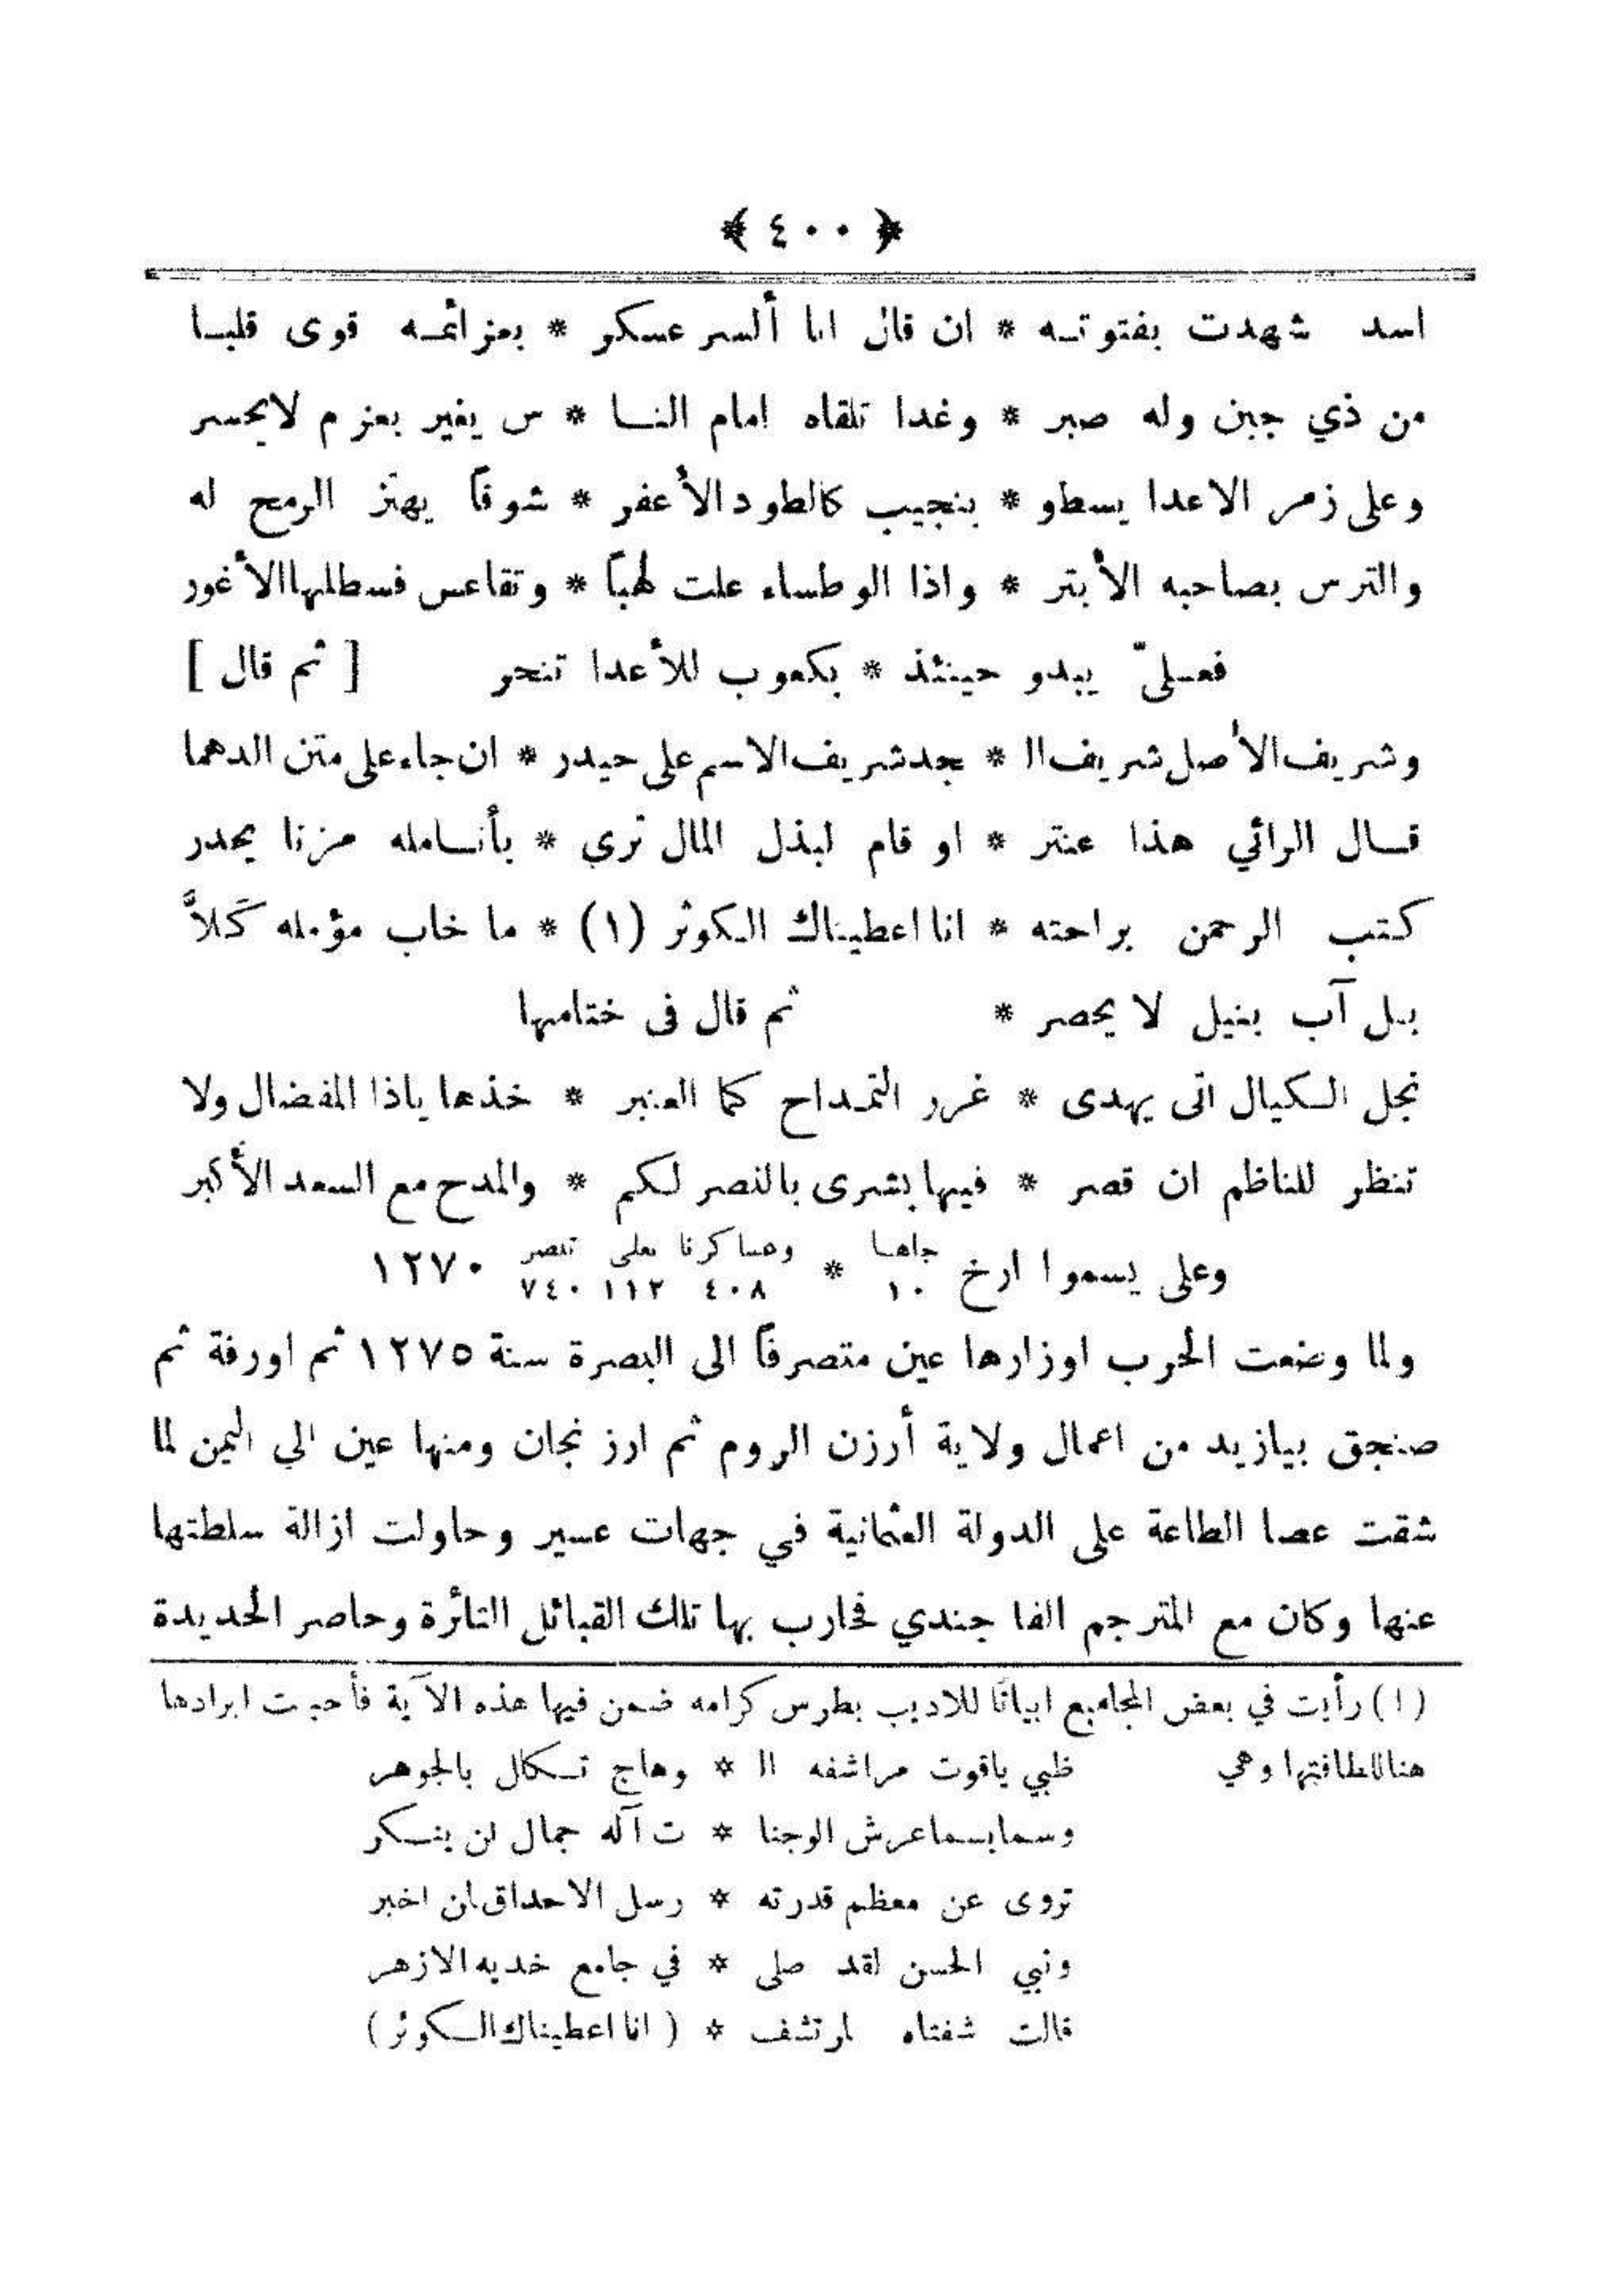 ﴿ ٤٠٠ ﴾
اسد شهدت بفتوتـه * ان قال انا ألسر عسكر * بعزائمـه قوى قلبـا
من ذي جبن وله صبر * وغدا تلقاه امام النـا * س يغير بعزم لايحسر
وعلى زمر الاعدا يسطو * بنجيب كالطود الأعفر * شوقاً يهتز الرمح له
والترس بصاحبه الأبتر * واذا الوطساء علت لهباً * وتقاعس فسطلها الأغور
فعـليّ يبدو حينئذ * بكعوب للأعدا تنحر [ ثم قال ]
وشريف الأصل شريف ال * مجد شريف الاسم على حيدر * ان جاء على متن الدهما
قـال الرائي هذا عنتر * او قام لبذل المال ترى * بأنـامله مزنا يحدر
كتب الرحمن براحته * انا اعطيناك الكوثر (١) * ما خاب مؤمله كَلاَّ
بل آب بنيل لا يحصر * ثم قال فى ختامها
نجل الكيال اتى يهدى * غرر التمداح كما العنبر * خذها ياذا المفضال ولا
تنظر للناظم ان قصر * فيها بشرى بالنصر لكم * والمدح مع السعد الأكبر
وعلى يسموا ارخ جاهـا * وعساكرنا بعلى تنصر ١٢٧٠
١٠ ٤٠٨ ١١٢ ٧٤٠
ولما وضعت الحرب اوزارها عين متصرفاً الى البصرة سنة ١٢٧٥ ثم اورفة ثم
صنجق بيازيد من اعمال ولاية أرزن الروم ثم ارز نجان ومنها عين الي اليمن لما
شقت عصا الطاعة على الدولة العثمانية في جهات عسير وحاولت ازالة سلطتها
عنها وكان مع المترجم الفا جندي فحارب بها تلك القبائل الثائرة وحاصر الحديدة
(١) رأيت في بعض المجاميع ابياتا للاديب بطرس كرامه ضمن فيها هذه الآية فأحببت ايرادها
هنا للطافتها وهي ظبي ياقوت مراشفه ال * وهاج تـكال بالجوهر
وسما بسما عرش الوجنا * ت آله جمال لن ينـكر
تروى عن معظم قدرته * رسل الاحداق لمن اخبر
ونبي الحسن لقد صلى * في جامع خديه الازهر
قالت شفتاه لمرتشف * ( انا اعطيناك الـكوثر )